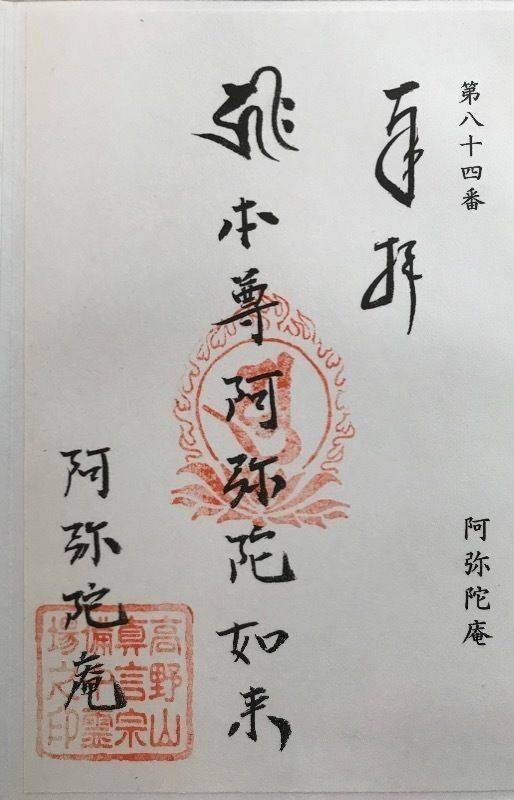 第八十四番
阿弥陀庵
奉拝
本尊阿弥陀如来
阿弥陀庵
高野山
真言宗
場之印